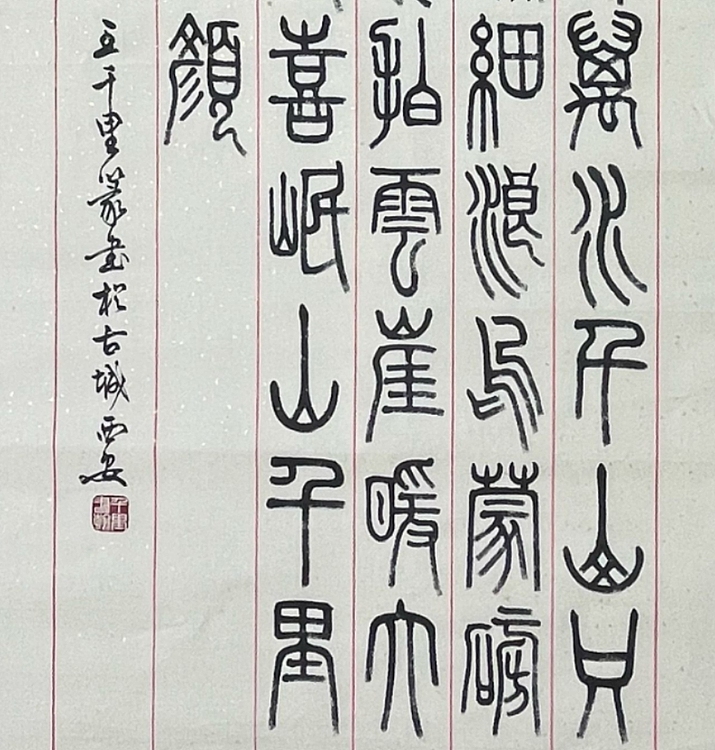 萬水千山只
細浪烏蒙磅
拍雲崖暖大
喜岷山千里
顏
王千里篆書於古城西安